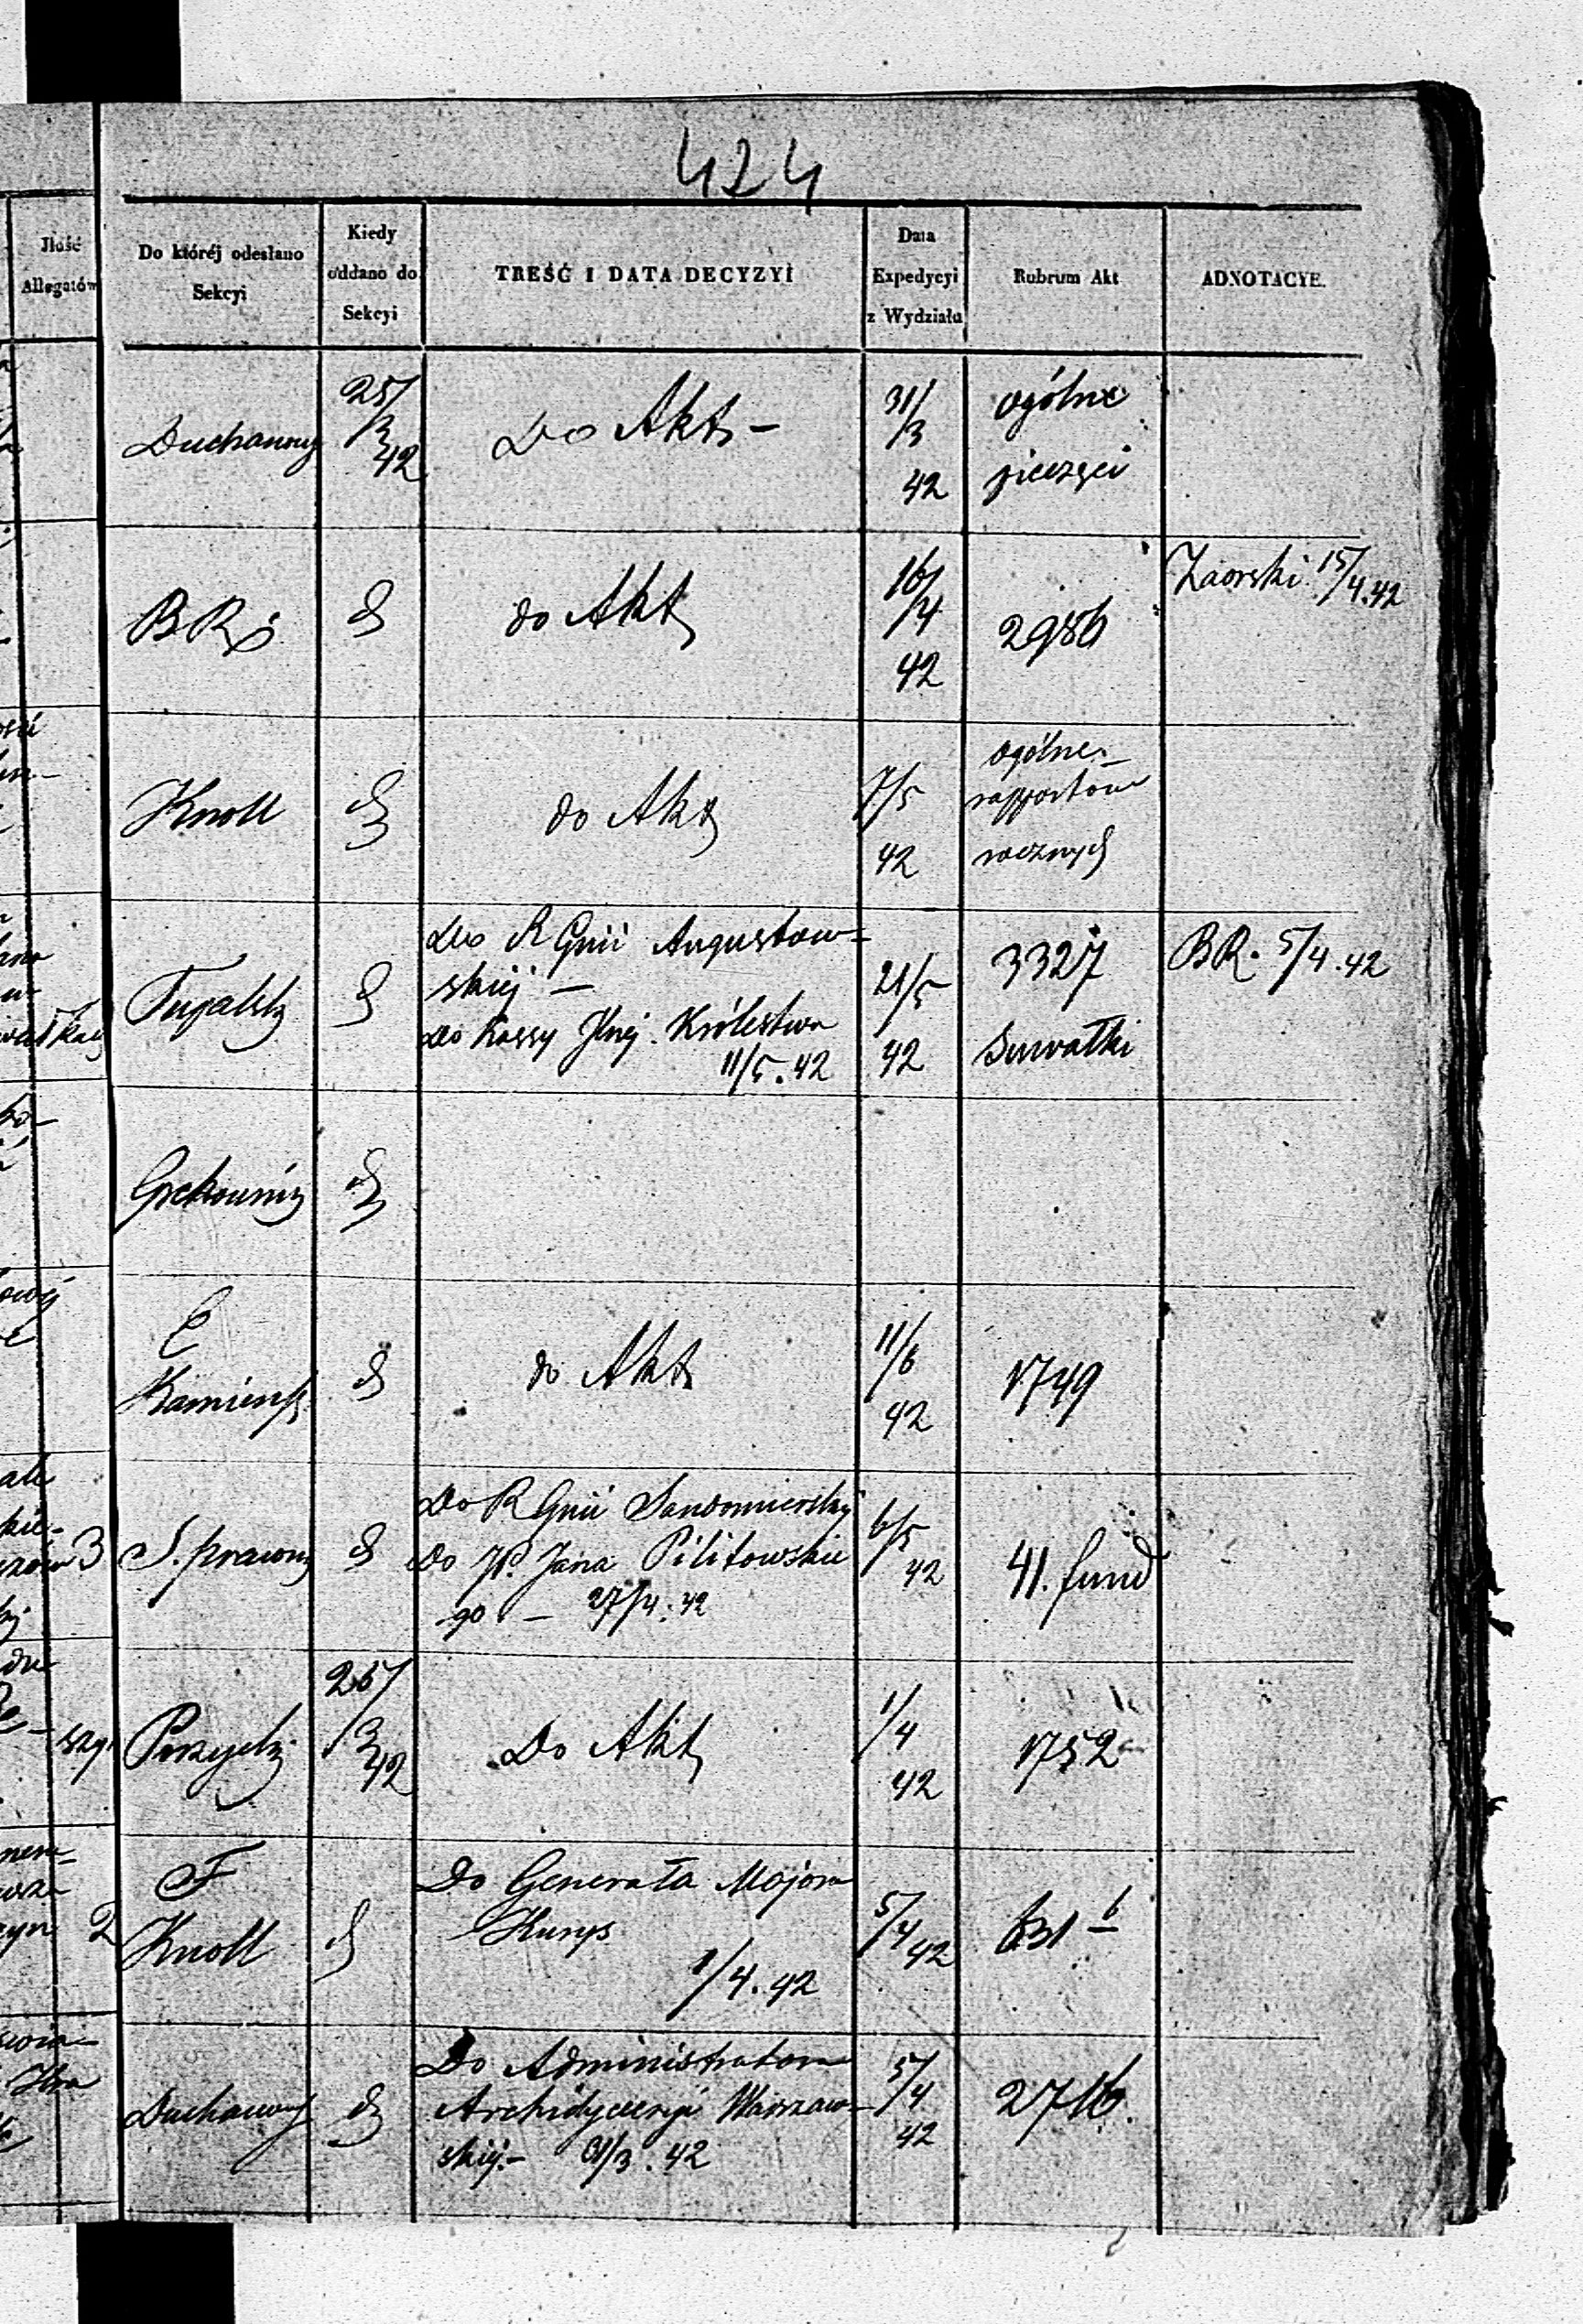 424
Jlość
Allegatów
Do któréj odesłano
Sekcyi
Kiedy
oddano do
Sekcyi
TREŚĆ I DATA DECYZYI
Data
Expedycyi
z Wydziału
Rubrum Akt
ADNOTACYE.
Duchowny
25/3 42
Do Akt –
31/3
42
ogólne
pieczęci
BR
do Akt
16/4
42
2986
Zaorski 15/4.42
Knoll
do Akt
7/5
42
ogólne
rapportów
rocznych
Do R Gnii Augustow-
skiej –
Do Kassy Jlnej. Królestwa
11/5.42
21/5
42
3327
Suwałki
BR. 5/4.42
Kamieńsk
do Akt
11/6
42
1749
3
S. prawny
Do R Gnii Sandomierskiej
Do JP. Jana Pilitowskie
go – 27/4.42
6/5
42
41. fund
Do Akt
1/4
42
1752
2
F
Knoll
Do Generała Majora
1/4.42
5/4 42
631 b
Duchowny
Do Administratora
Archidyecezyi Warszaw-
skiej.– 31/3.42
5/4
42
2716.